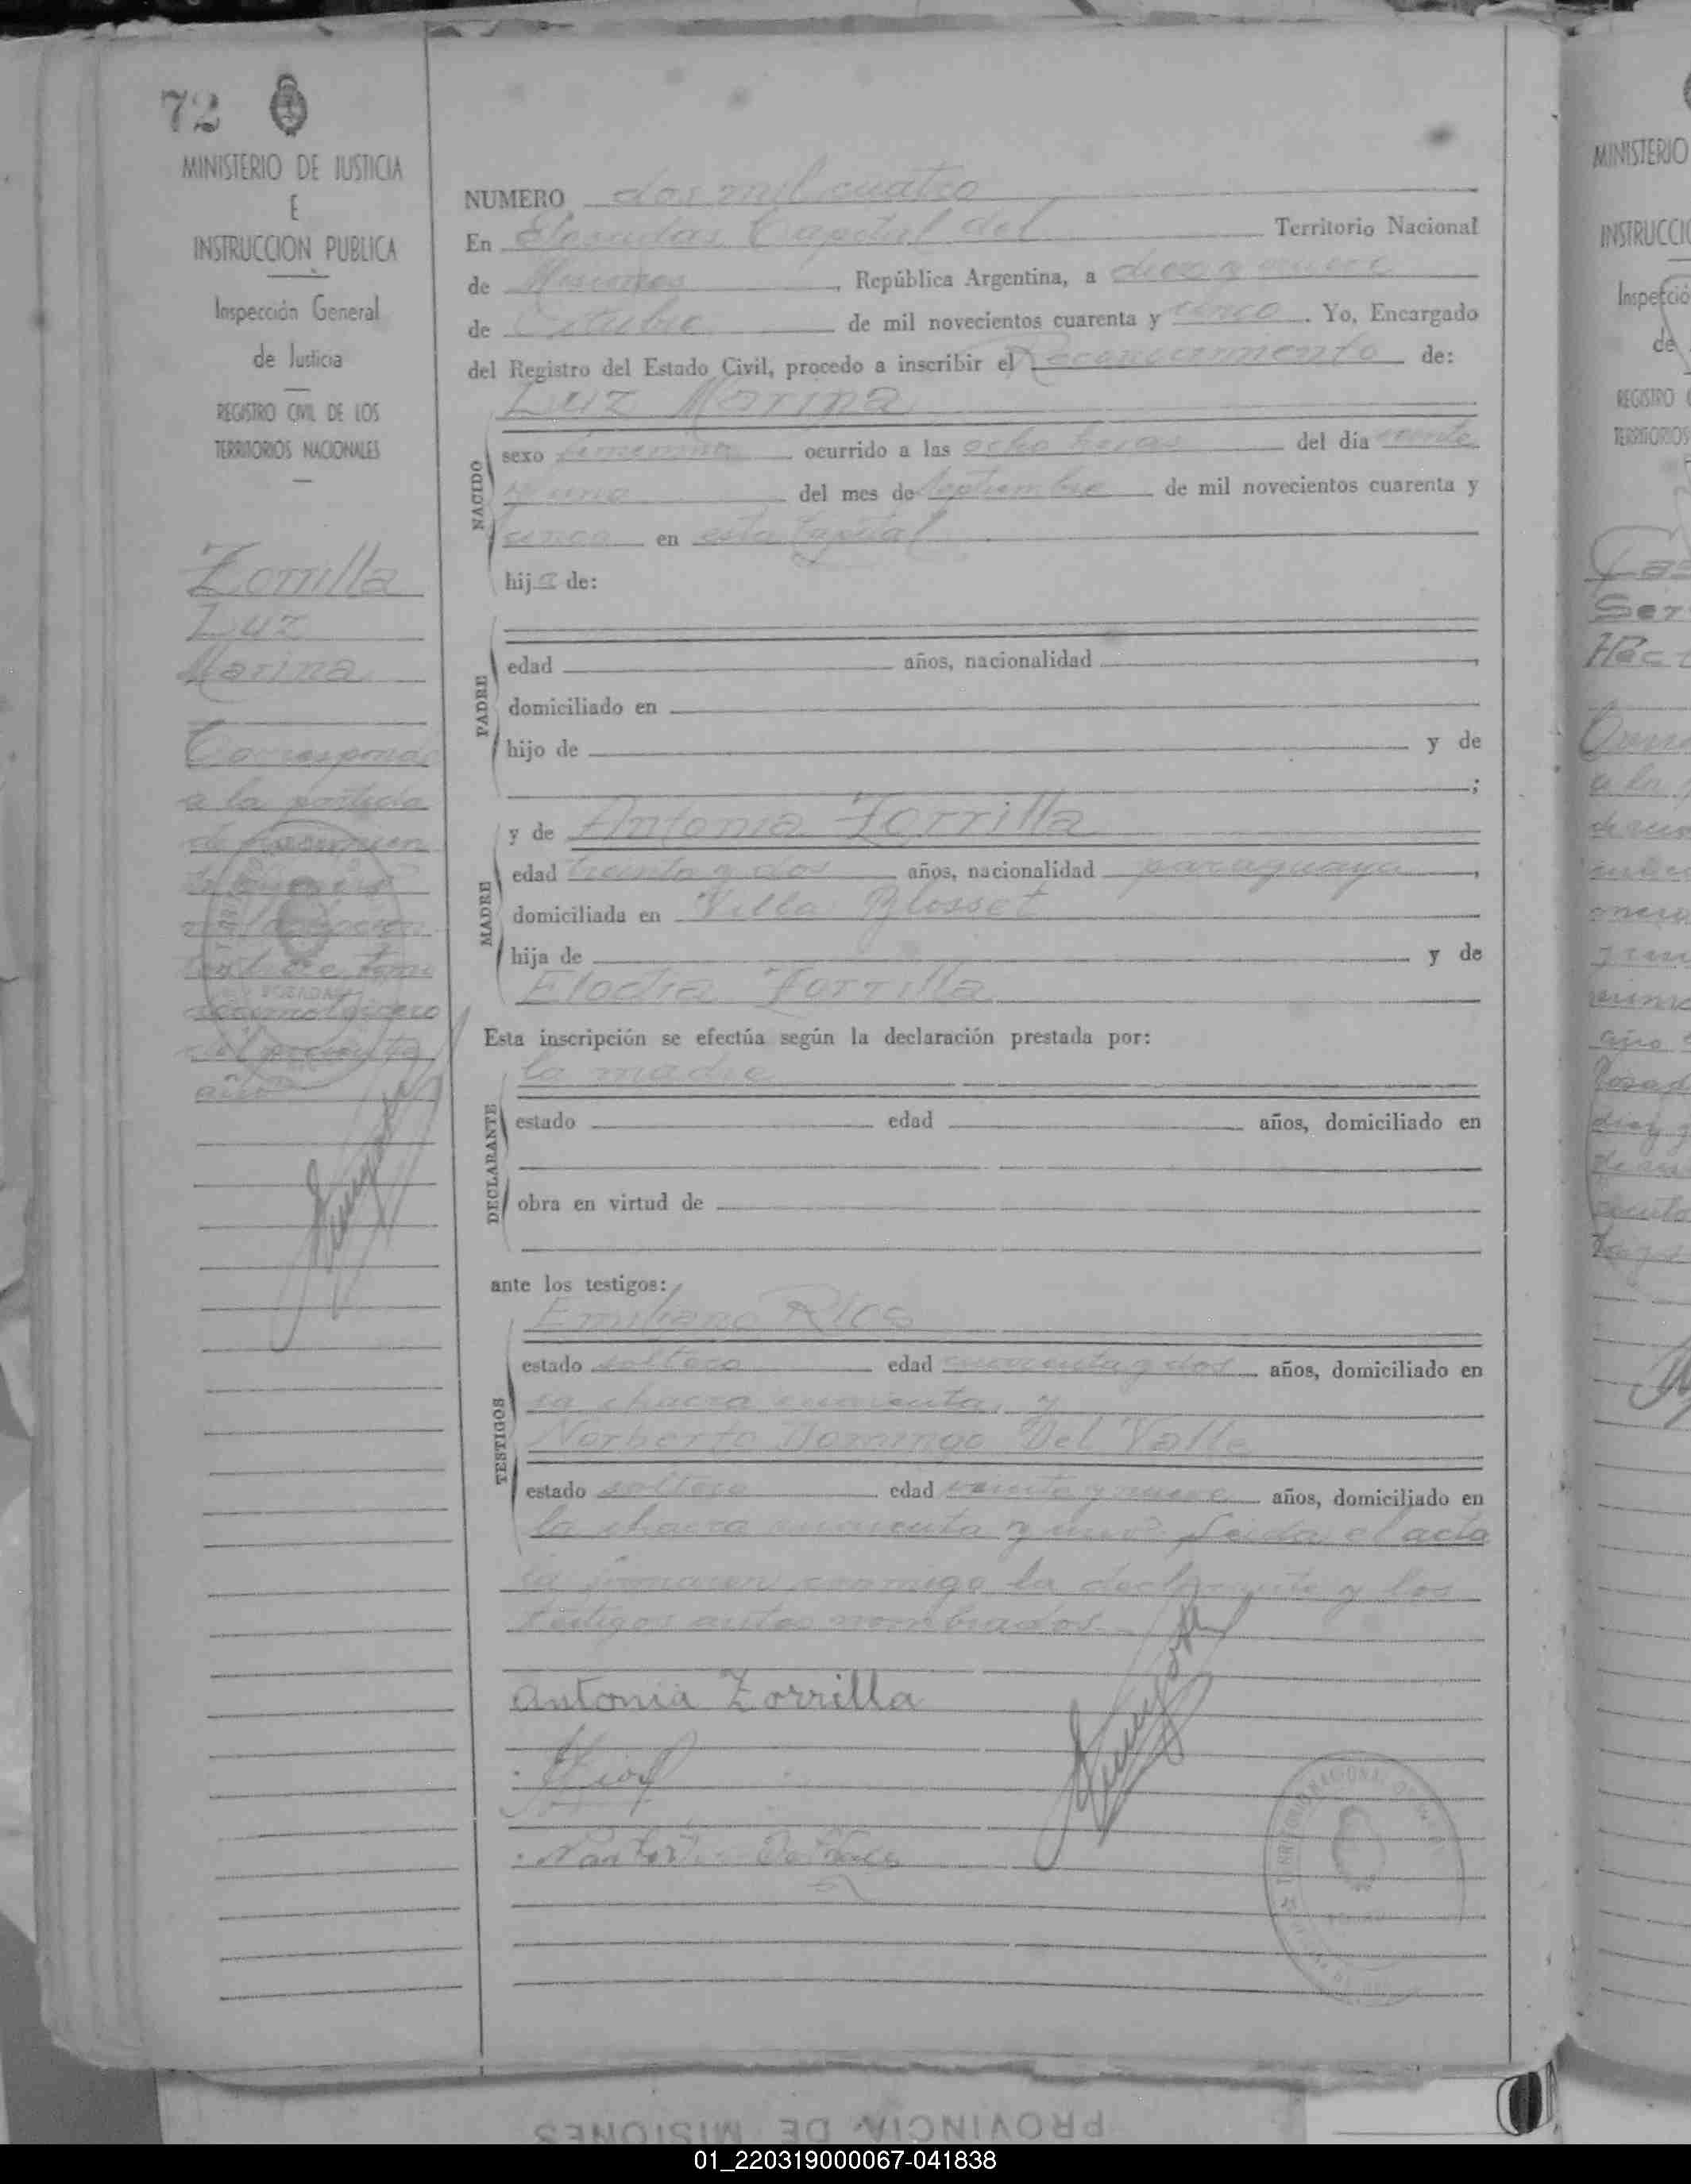 72
MINISTERIO DE JUSTICIA
E
INSTRUCCION PUBLICA
Inspección General
de Justicia
REGISTRO CIVIL DE LOS
TERRITORIOS NACIONALES
Zorrilla
Luz
Marina
Corresponde
a la partida
de
tomo
del presente
año
NUMERO dos mil cuatro
En Posadas Capital del Territorio Nacional
de Misiones, República Argentina, a diez y nueve
de Octubre de mil novecientos cuarenta y cinco. Yo, Encargado
del Registro del Estado Civil, procedo a inscribir el Reconocimiento de:
Luz Marina
NACIDO
sexo femenino ocurrido a las ocho horas del día veinte
y uno del mes de Septiembre de mil novecientos cuarenta y
cinco en esta Capital
hija de:
PADRE
edad años, nacionalidad ,
domiciliado en
hijo de y de
;
MADRE
y de Antonia Zorrilla
edad treinta y dos años, nacionalidad paraguaya,
domiciliada en Villa Blosset
hija de y de
Elodia Zorrilla
Esta inscripción se efectúa según la declaración prestada por:
la madre
DECLARANTE
estado edad años, domiciliado en
obra en virtud de
ante los testigos:
Emiliano Rios
TESTIGOS
estado soltero edad cuarenta y dos años, domiciliado en
la chacra cuarenta, y
Norberto Domingo Del Valle
estado soltero edad veinte y nueve años, domiciliado en
la chacra cuarenta y uno. Leida el acta
la firmaron conmigo la declarante y los
testigos antes nombrados.
Antonia Zorrilla
TERRITORIO NACIONAL DE
MINISTERIO
INSTRUCCIO
Inspecció
de
REGISTRO
TERRITORIOS
PROVINCIA DE MISIONES
01_220319000067-041838